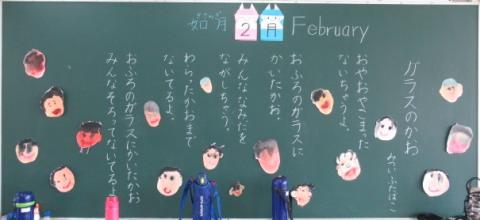 きさらぎ
如月 2月 February
ガラスのかお
みついふたばこ
おやおやこまった
ないちゃうよ。
おふろのガラスに
かいたかお。
みんななみだを
ながしちゃう。
わらったかおまで
ないてるよ。
おふろのガラスにかいたかお
みんなそろってないてるよ